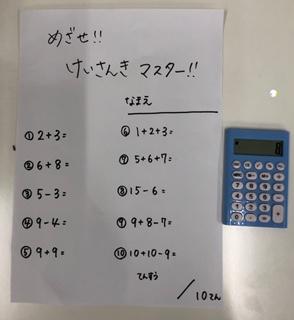 めざせ!!
けいさんき マスター!!
なまえ
① 2+3=
② 6+8=
③ 5-3=
④ 9-4=
⑤ 9+9=
⑥ 1+2+3=
⑦ 5+6+7=
⑧ 15-6=
⑨ 9+8-7=
⑩ 10+10-9=
てんすう
/10てん
8